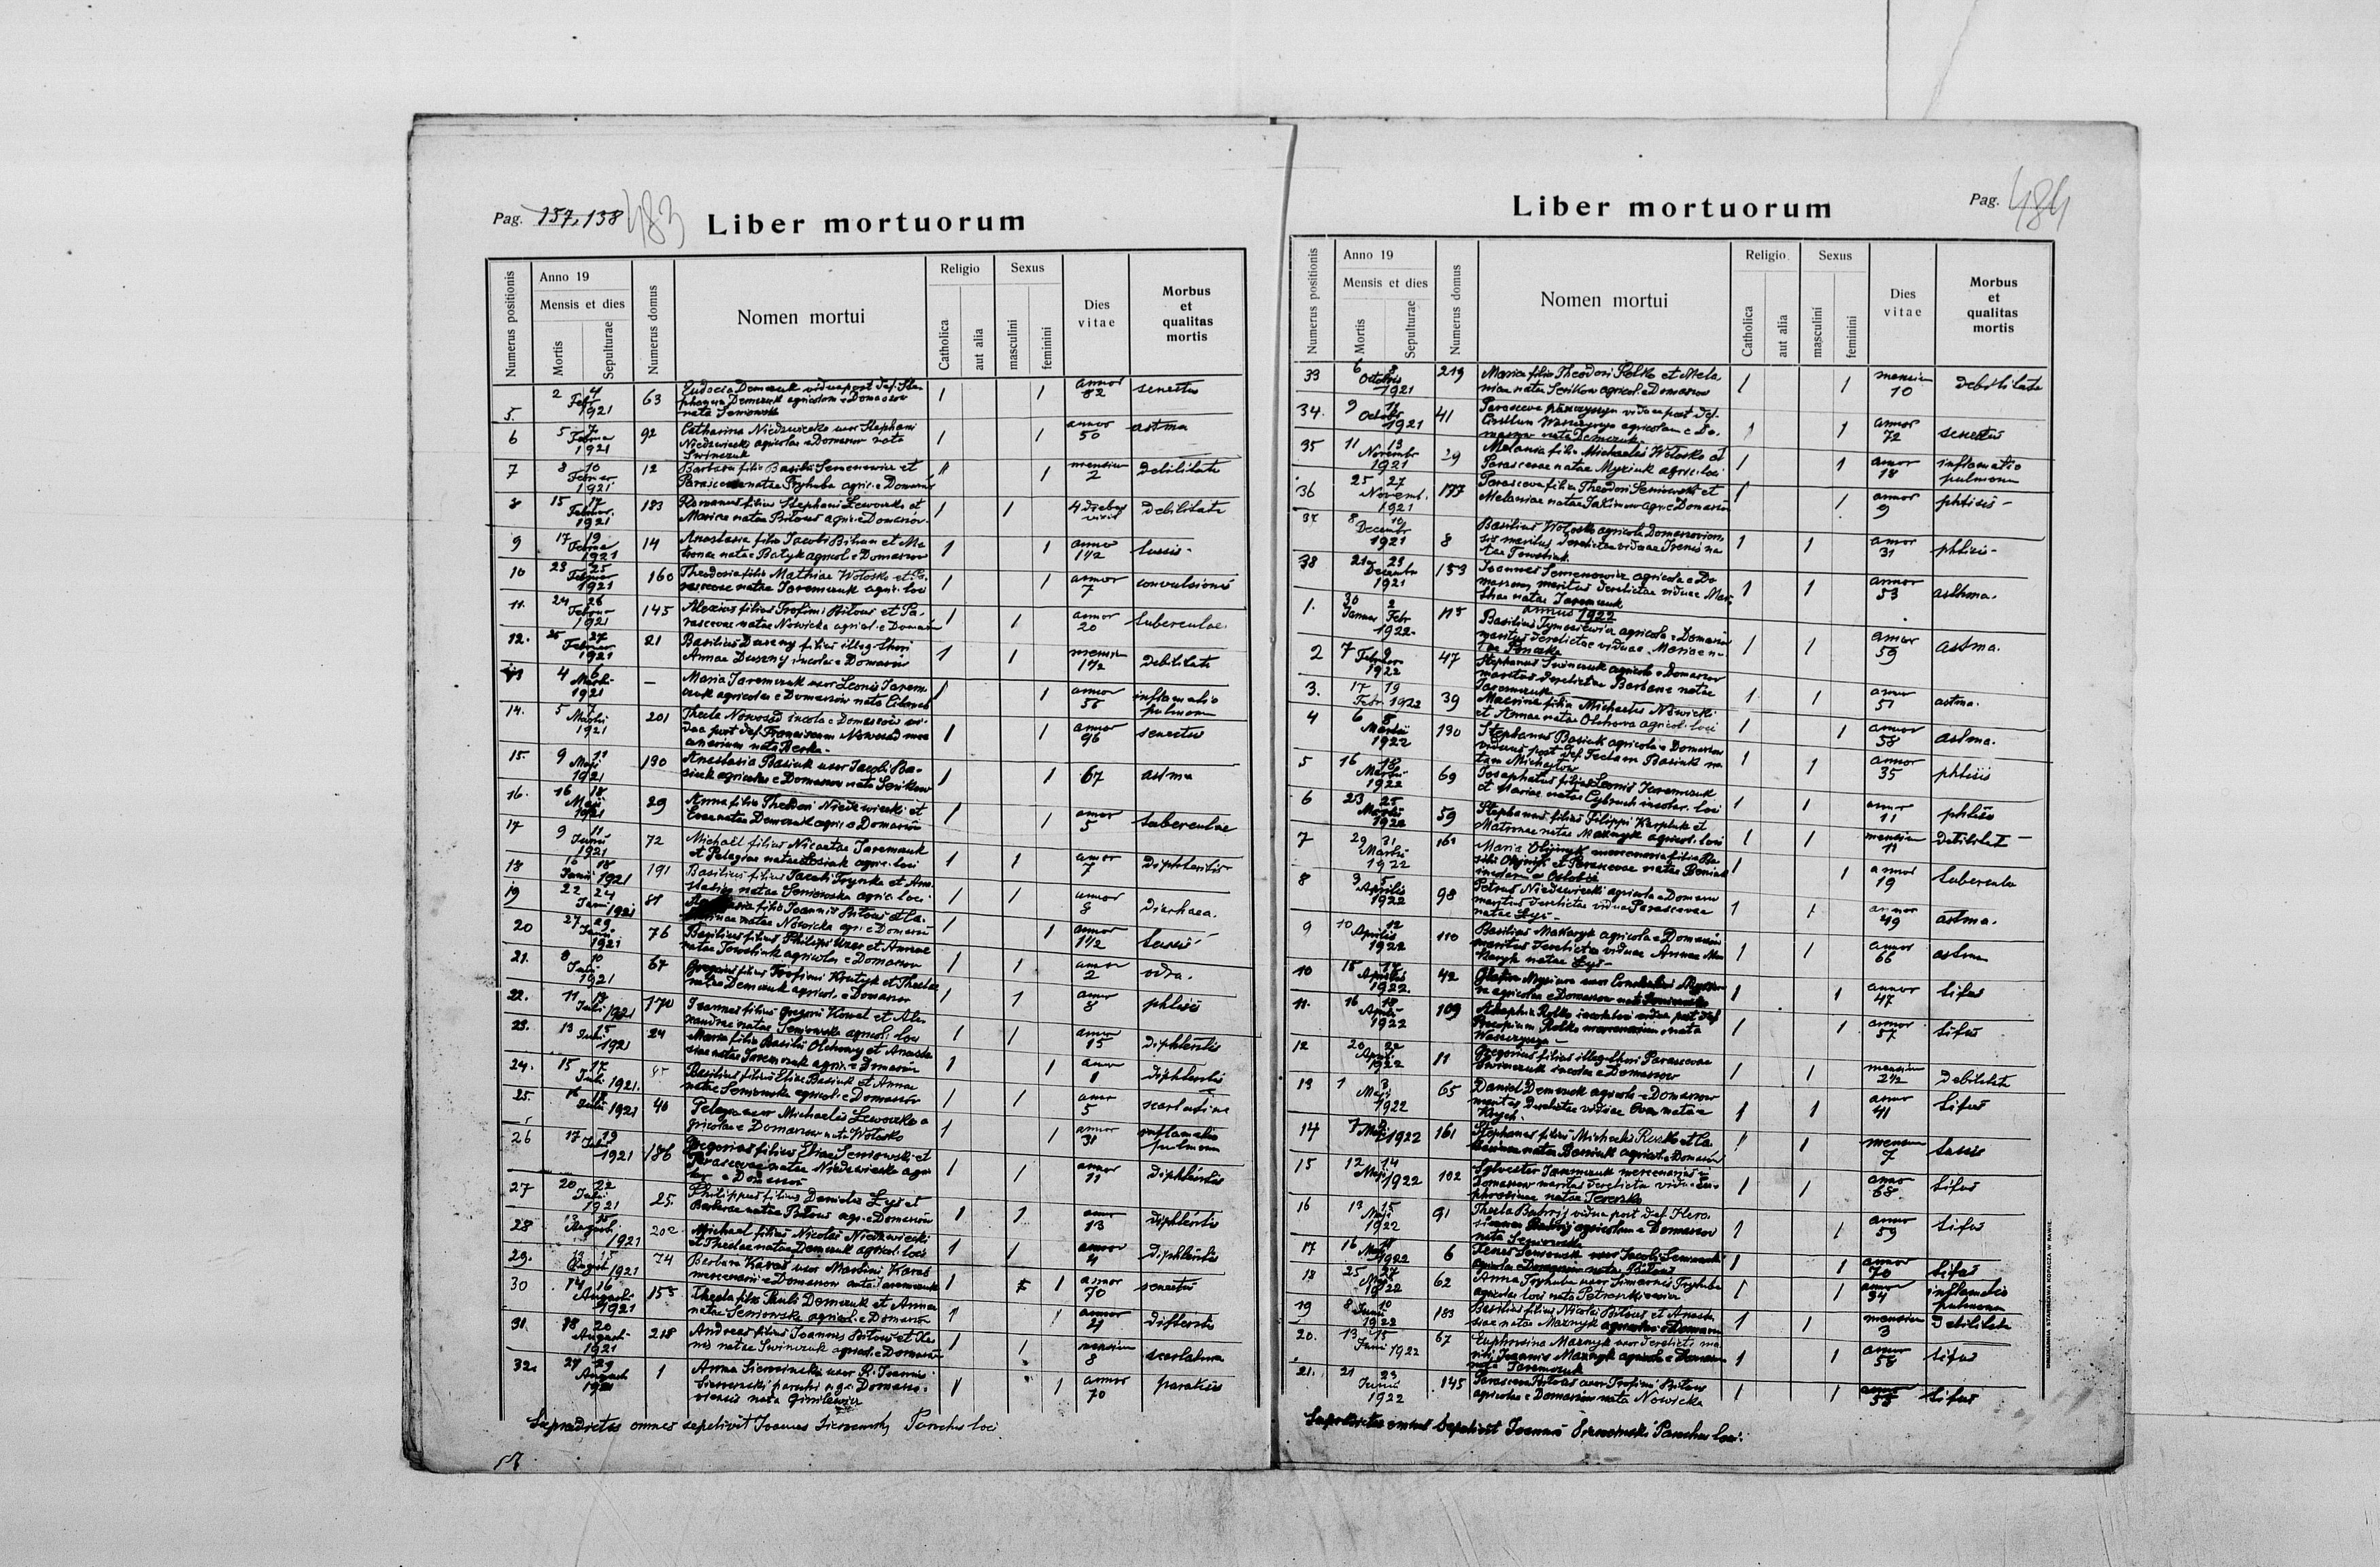 Pag. 157, 158 483
Liber mortuorum
Numerus positionis
Anno 19
Mensis et dies
Mortis
Sepulturae
Numerus domus
Nomen mortui
Religio
Catholica
aut alia
Sexus
masculini
feminini
Dies vitae
Morbus et qualitas mortis
5. 2 4 Febr 1921 63 Eudocia Demczuk vidua post def. Ste-
phanum Demczuk agricolam e Domaszow
nata Seniowska 1 1 annor 82 senectus
6 5 7 Februa 1921 92 Catharina Niedzwiecka uxor Stephani
Niedzwiecki agricolae e Domaszow nata
Swinczuk 1 1 annor 50 astma
7 8 10 Februar 1921 12 Barbara filia Basilii Semenowicz et
Parascevae natae Tryhuba agric. e Domaszów 1 1 mensium 2 debilitate
8 15 17 Februar. 1921 183 Romanus filius Stephani Lewoczko et
Mariae natae Bitous agric. e Domaszów 1 1 4 diebus vixit debilitate
9 17 19 Februa 1921 14 Anastasia filia Jacobi Bihun et Ma-
tronae natae Batyk agricol. e Domaszow 1 1 annor 1 1/2 tussis
10 23 25 Februar 1921 160 Theodosia filia Mathiae Wolosko et Pa-
rascevae natae Jaremczuk agric. loci 1 1 annor 7 convulsionis
11. 24 26 Februar 1921 145 Alexius filius Trofimi Bitous et Pa-
rascevae natae Nowicka agricol. e Domaszów 1 1 annor 20 tuberculae
12. 25 27 Februar 1921 21 Basilius Duszny filius illeg. thori
Annae Duszny incolae e Domaszów 1 1 mensium 1 1/2 debilitate
13 4 6 Martii 1921 — Maria Jaremczuk uxor Leonis Jarem-
czuk agricolae e Domaszów nata 1 1 annor 55 inflamatio pulmonum
14. 5 7 Martii 1921 201 Thecla Nowosad incola e Domaszów vi-
dua post def. Franciscum Nowosad mer-
cenarium nata 1 1 annor 96 senectus
15. 9 11 Maji 1921 130 Anastasia Basiuk uxor Jacobi Ba-
siuk agricolae e Domaszow nata Senkow 1 1 67 astma
16. 16 18 Maji 1921 29 Anna filia Theodori Niedzwiecki et
Evae natae Demczuk agric. e Domaszów 1 1 annor 5 tuberculae
17 9 11 Junii 1921 72 Michaël filius Nicaetae Jaremczuk
et Pelagiae natae agric. loci 1 1 annor 7 diphteritis
18 16 18 Junii 1921 191 Basilius filius Jacobi Hrynka et Ana-
stasiae natae Seniowska agric. loci 1 1 annor 8 diarhaea.
19 22 24 Junii 1921 81 filia Joannis Bitous et Ca-
natae Nowicka agr. e Domaszów 1 1 annor 1 1/2 tussis
20 27 29 Junii 1921 76 Basilius filius Philippi et Annae
natae Towstiuk agricolae e Domaszow 1 1 annor 2 odra.
21. 8 10 Juli 1921 67 Gregorius filius Trofimi Kratyk et Theclae
natae Demczuk agricol. e Domaszow 1 1 annor 8 phtisis
22. 11 13 Juli 1921 170 Joannes filius Gregorii Kowal et Ale-
xandrae natae Seniowska agricol. loci 1 1 annor 15 diphteritis
23. 13 15 Juli 1921 24 Maria filia Basilii Olchowy et Anasta-
siae natae Jaremczuk agric. e Domaszów 1 1 annor 1 diphteritis
24. 15 17 Juli 1921. Basilius filius Eliae Basiuk et Annae
natae Seniowska agricol. e Domaszów 1 1 annor 5 scarlatina
25. 16 18 Julii 1921 40 Pelagia uxor Michaelis Lewoczko a-
gricolae e Domaszow nata Wolosko 1 1 annor 31 inflamatio pulmonum
26 17 19 Julii 1921 186 Gregorius filius Eliae Seniowski et
Parascevae natae Niedzwiecka agri-
e Domaszów 1 1 annor 11 diphteritis
27 20 22 Julii 1921 25. Philippus filius Danielis Łyś et
Barbarae natae Bitous agr. e Domaszów 1 1 annor 13 diphteritis
28 13 15 Augusti 1921 202 Michael filius Nicolai Niedzwiecki
et Theclae natae Demczuk agricol. loci 1 1 annor 4 diphteritis
29. 13 15 August 1921 74 Barbara Karas uxor Martini Karas
mercenarii e Domaszow nata Jaremczuk 1 1 annor 70 senectus
30 14 16 Augusti 1921 155 Thecla filia Pauli Demczuk et Annae
natae Seniowska agricol. e Domaszów 1 1 annor 21 difteritis
31. 18 20 Augusti 1921 218 Andreas filius Joannis Bitous et Xe-
nis natae Swinczuk agricol. e Domaszów 1 1 mensium 8 scarlatina
32. 27 29 Augusti 1921 1 Anna Sierocinska uxor R. Joannis
Sierocinski parochi r. gr. Domaszo-
viensis nata 1 1 annor 70 paralisis
Supradictos omnes sepelivit Joannes Sierocinski Parochus loci
Pag. 484
Liber mortuorum
Numerus positionis
Anno 19
Mensis et dies
Mortis
Sepulturae
Numerus domus
Nomen mortui
Religio
Catholica
aut alia
Sexus
masculini
feminini
Dies vitae
Morbus et qualitas mortis
33 6 8 Octobris 1921 219 Maria filia Theodori Rolko et Mela-
niae natae Senkow agricol. e Domaszow 1 1 mensium 10 debilitate
34. 9 11 Octobr 1921 41 Parasceva Waszczyszyn vidua post def.
Waszczyszyn agricolam e Do-
maszow nata Demczuk 1 1 annor 72 senectus
35 11 13 Novembr 1921 29 Melania filia Michaelis Wolosko et
Parascevae natae Myziuk agric. loci 1 1 annor 18 inflamatio pulmonum
36 25 27 Novemb. 1921 177 Parasceva filia Theodori Seniowski et
Melaniae natae Jakimow agr. e Domaszów 1 1 annor 9 phtisis
37 8 10 Decembr 1921 8 Basilius Wolosko agricola Domaszovien-
sis maritus derelictae viduae Irenis na-
tae Towstiuk 1 1 annor 31 phtisis
38 21 23 Decembr 1921 153 Joannes Semenowicz agricola e Do-
maszow maritus derelictae viduae Mar-
thae natae Jaremczuk 1 1 annor 53 asthma.
annus 1922
1. 30 2 Januar Febr 1922 115 Basilius Tymosiewicz agricola e Domaszów
maritus derelictae viduae Mariae na-
tae 1 1 annor 59 astma.
2 7 9 Februar 1922 47 Stephanus Swinczuk agricola e Domaszow
maritus derelictae Barbarae natae
Jaremczuk 1 1 annor 51 astma.
3. 17 19 Febr. 1922 39 filia Michaelis Nowicki
et Annae natae Olchowa agricol. loci 1 1 annor 58 astma.
4 6 8 Martii 1922 130 Stephanus Basiuk agricola e Domaszow
viduus post def. Teclam Basiuk na-
tam Michajłow 1 1 annor 35 phtisis
5 16 18 Martii 1922 69 Josaphatus filius Leonis Jaremczuk
et Mariae natae Cybruch incolar. loci 1 1 annor 11 phtisis
6 23 25 Martii 1922 59 Stephanus filius Filippi Karpluk et
Matronae natae Maznyk agricol. loci 1 1 mensium 11 debilitate
7 29 31 Martii 1922 161 Maria Olijnyk mercenaria filia Ba-
silii Olijnyk et Parascevae natae
1 1 annor 19 tubercula
8 3 5 Aprilis 1922 98 Petrus Niedzwiecki agricola e Domaszow
maritus derelictae viduae Parascevae
natae Łyś 1 1 annor 49 astma.
9 10 12 Aprilis 1922 110 Basilius Makaryk agricola e Domaszów
maritus derelictae viduae Annae Ma-
karyk natae Łyś 1 1 annor 66 astma
10 15 17 Aprilis 1922 42 uxor
agricolae e Domaszow nata Seniowska 1 1 annor 47 tifus
11. 16 18 Aprili 1922 109 Agaphia Rolko incola loci vidua post def
Procopium Rolko mercenarium nata
Waszczyszyn 1 1 annor 57 tifus
12 20 22 April. 1922 11 Gregorius filius illeg. thori Parascevae
Swinczuk incolae e Domaszow 1 1 mensium 2 1/2 debilitate
13 1 3 Maji 1922 65 Daniel Demczuk agricola e Domaszow
maritus derelictae viduae Evae natae
Krych. 1 1 annor 41 tifus
14 7 9 Maji 1922 161 Stephanus filius Michaelis Ruszko et Ca-
natae Basiuk agricol. e Domaszów 1 1 mensium 7 tussis
15 12 14 Maji 1922 102 Sylvester Jaremczuk mercenarius e
Domaszow maritus derelictae viduae Eu-
phrosinae natae Tereszko 1 1 annor 68 tifus
16 13 15 Maji 1922 91 Thecla Babrij vidua post def. Hera-
Babrij agricolam e Domaszow
nata Seniowska 1 1 annor 59 tifus
17 16 18 Maji 1922 6 Xenes Seniowska uxor Jacobi Seniowski
agricolae e Domaszow nata Bitous 1 1 annor 70 tifus
18 25 27 Maji 1922 62 Anna Tryhuba uxor Simeonis Tryhuba
agricolae loci nata Petraszkiewicz 1 1 annor 34 inflamatio pulmonum
19 8 10 Junii 1922 183 Basilius filius Nicolai Bitous et Anasta-
siae natae Maznyk agricolae e Domaszow 1 1 mensium 3 debilitate
20. 13 15 Junii 1922 67 Euphrosina Maznyk uxor derelicti ma-
riti Joannis Maznyk agricolae e Domaszow
nata Jaremczuk 1 1 annor 58 tifus
21. 21 23 Junii 1922 145 Parasceva Bitous uxor Trofimi Bitous
agricolae e Domaszów nata Nowicka 1 1 annor 55 tifus
Supradictos omnes sepelivit Joannes Sierocinski Parochus loci.
DRUKARNIA STARSZAKA KOPACZA W RAWIE